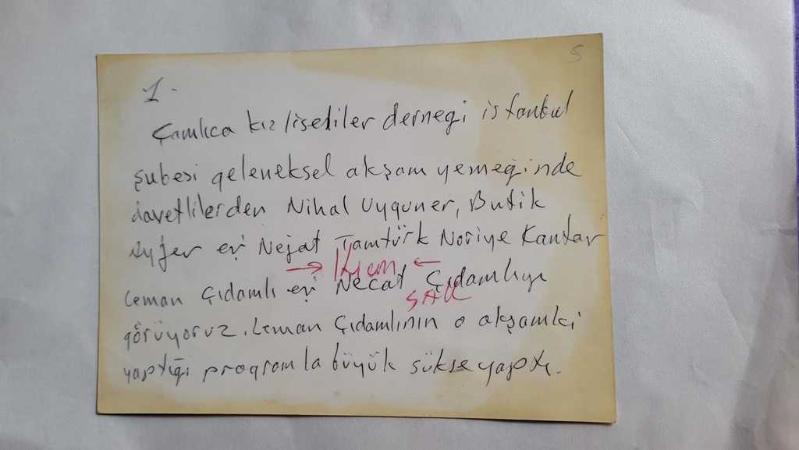 5
1-
Çamlıca kız lisediler derneği istanbul
şubesi geleneksel akşam yemeğinde
davetlilerden Nihal Uyguner, Butik
Ayfer eşi Nejat Tamtürk Noriye Kantar
Leman Çıdamlı eşi Necat Çıdamlıyı
görüyoruz. Leman Çıdamlının o akşamki
yaptığı programla büyük sükse yaptı.